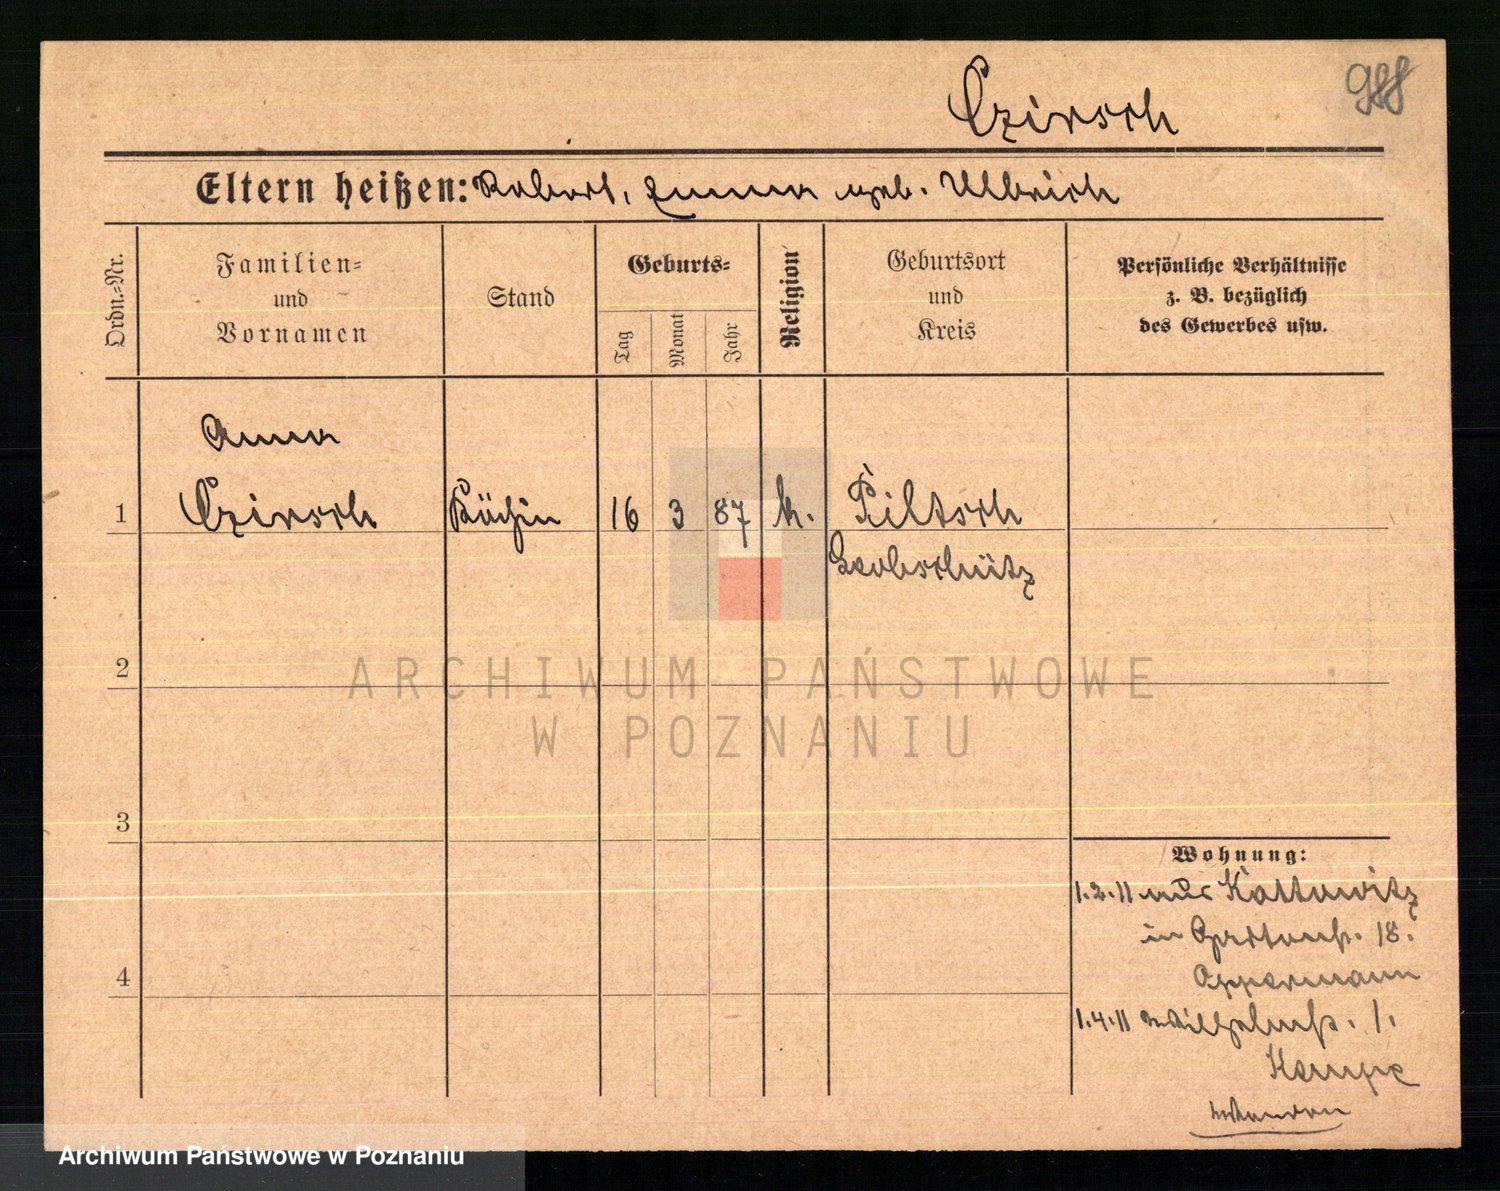 988
Czirsch
Eltern heißen: Robert, Emma geb. Ulbrich
Ordn.-Nr.
Familien-
und
Vornamen
Stand
Geburts-
Tag
Monat
Jahr
Religion
Geburtsort
und
Kreis
Persönliche Verhältnisse
z. B. bezüglich
des Gewerbes usw.
Anna
1 Czirsch Köchin 16 3 87 k. Piltsch
Leobschütz
2
ARCHIWUM PAŃSTWOWE
W POZNANIU
3
4
Wohnung:
1.2.11 aus Kattowitz
in 18.
Oppermann
1.4.11 Wilhelmstr. 1.
Kempe
Archiwum Państwowe w Poznaniu